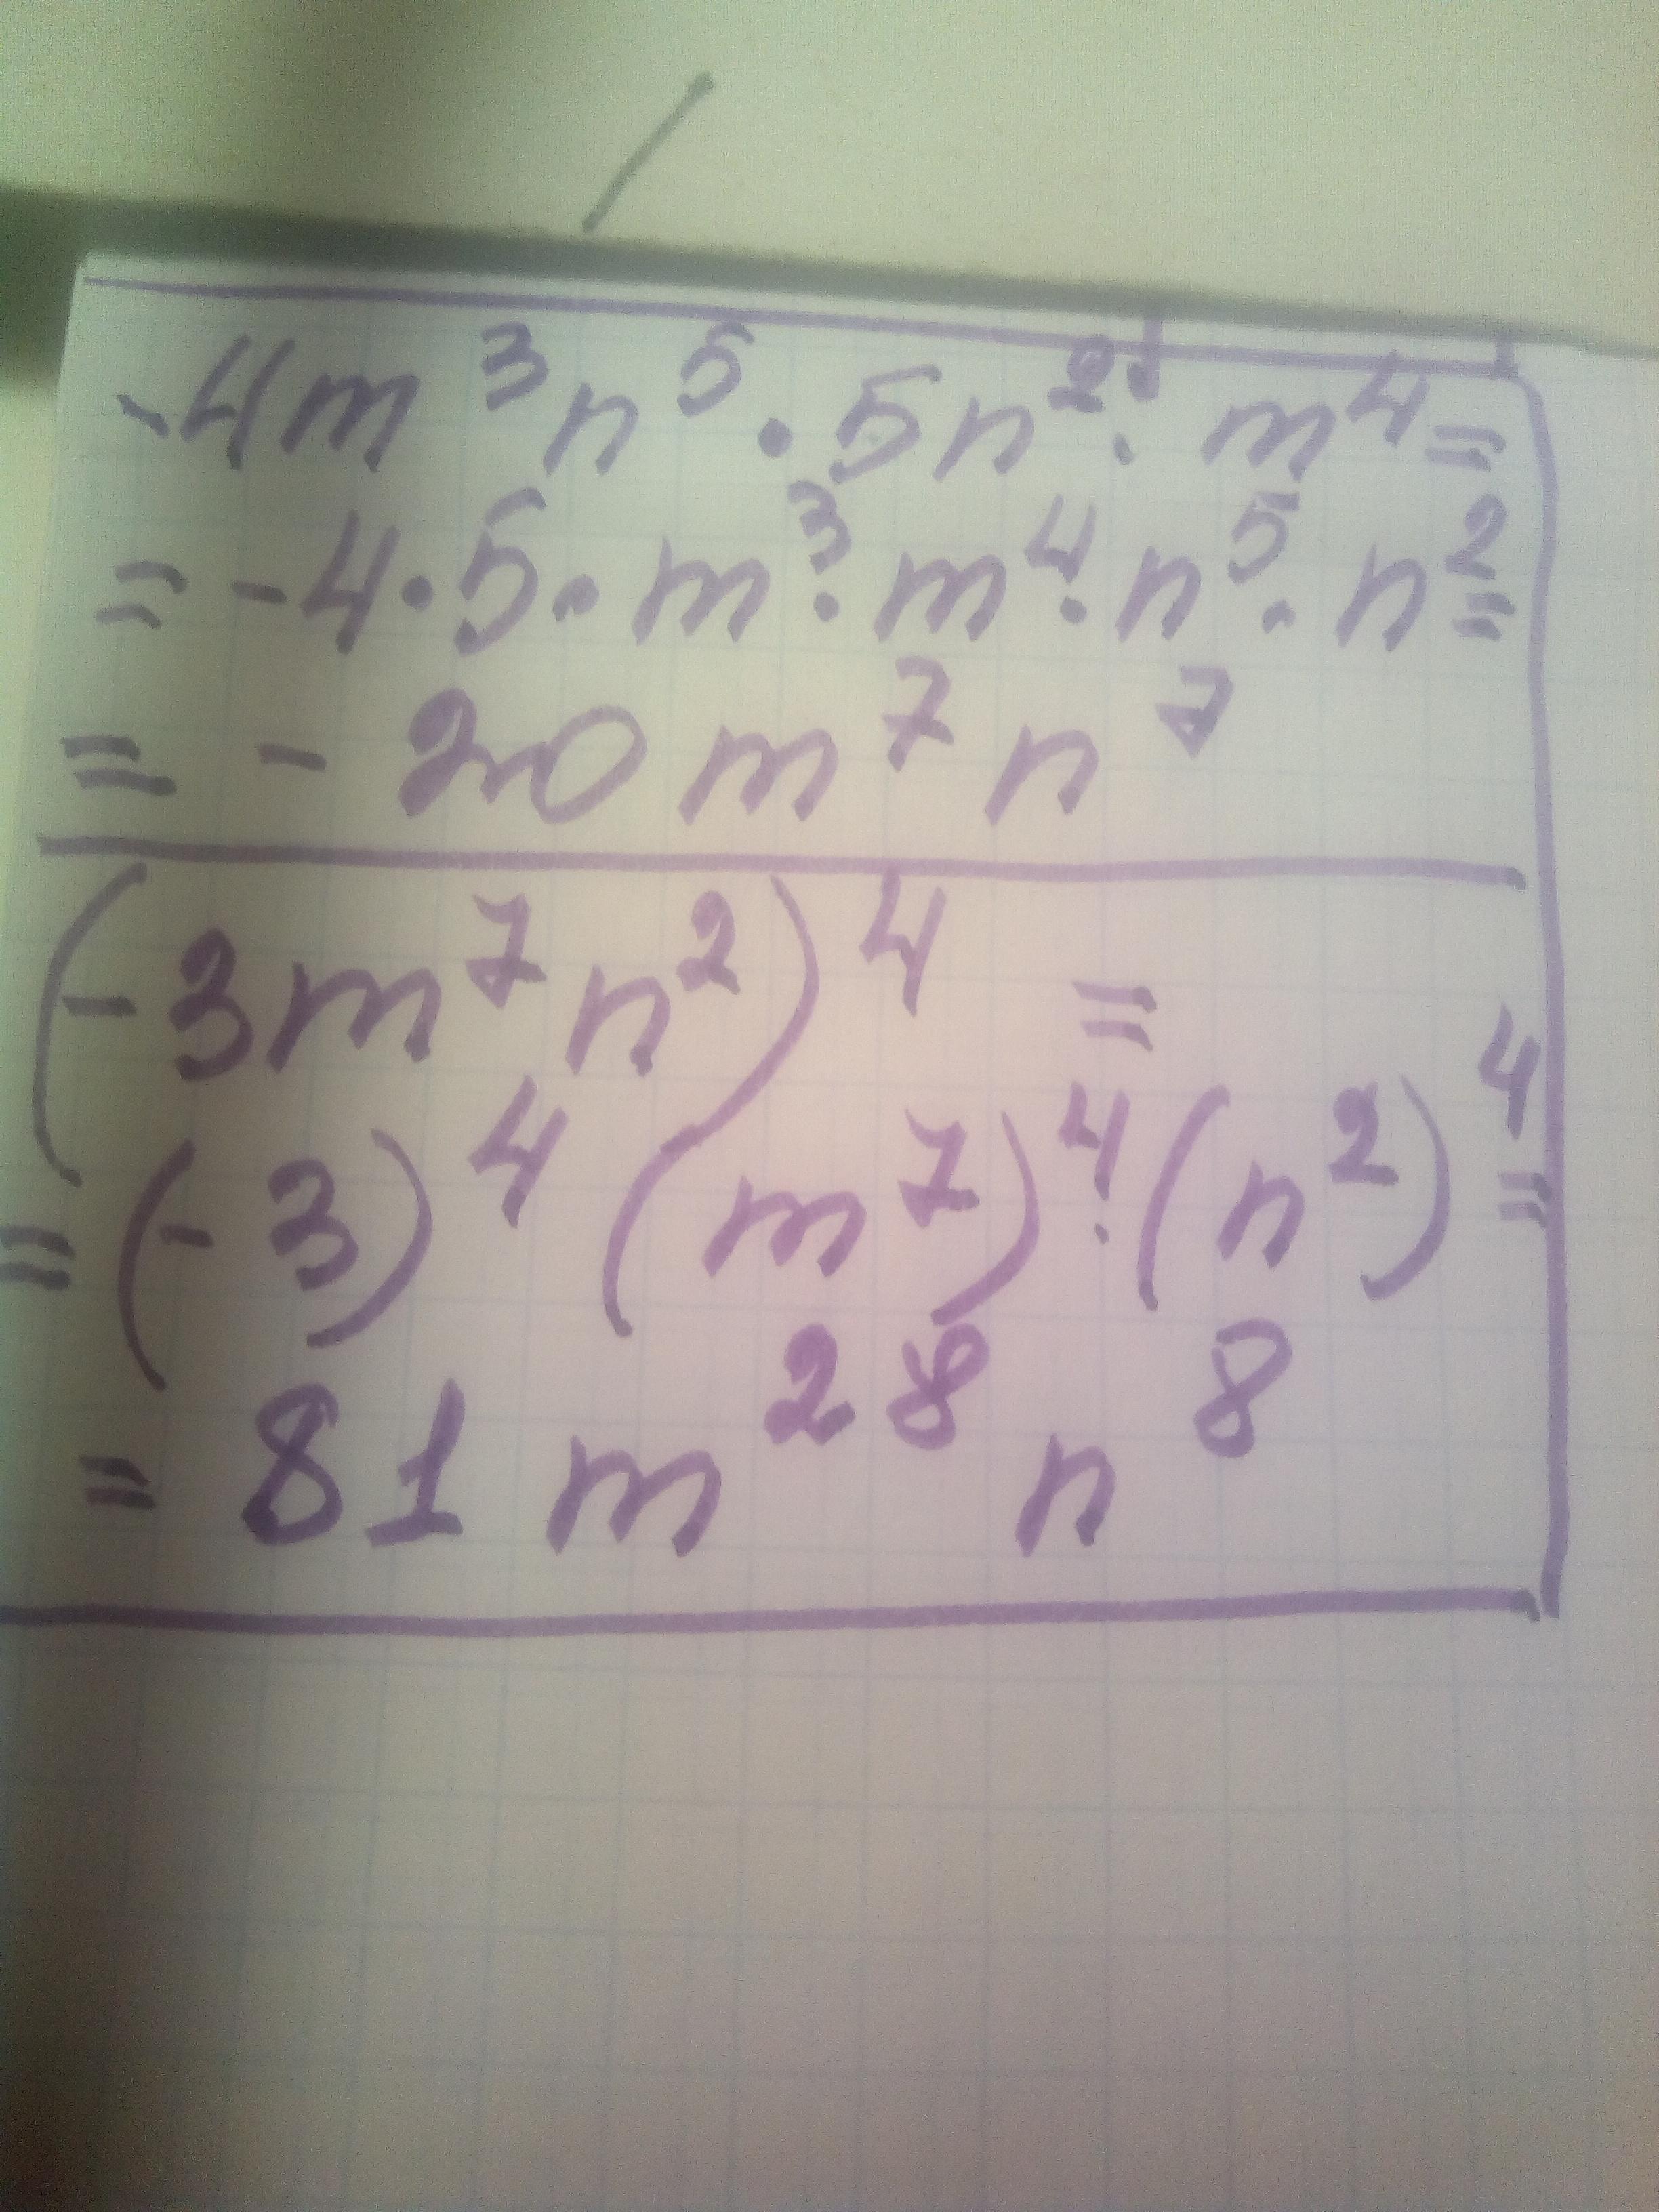 -4m³n⁵·5n²·m⁴=
=-4·5·m³·m⁴·n⁵·n²=
=-20m⁷n⁷
(-3m⁷n²)⁴=
=(-3)⁴(m⁷)⁴·(n²)⁴=
=81m²⁸n⁸